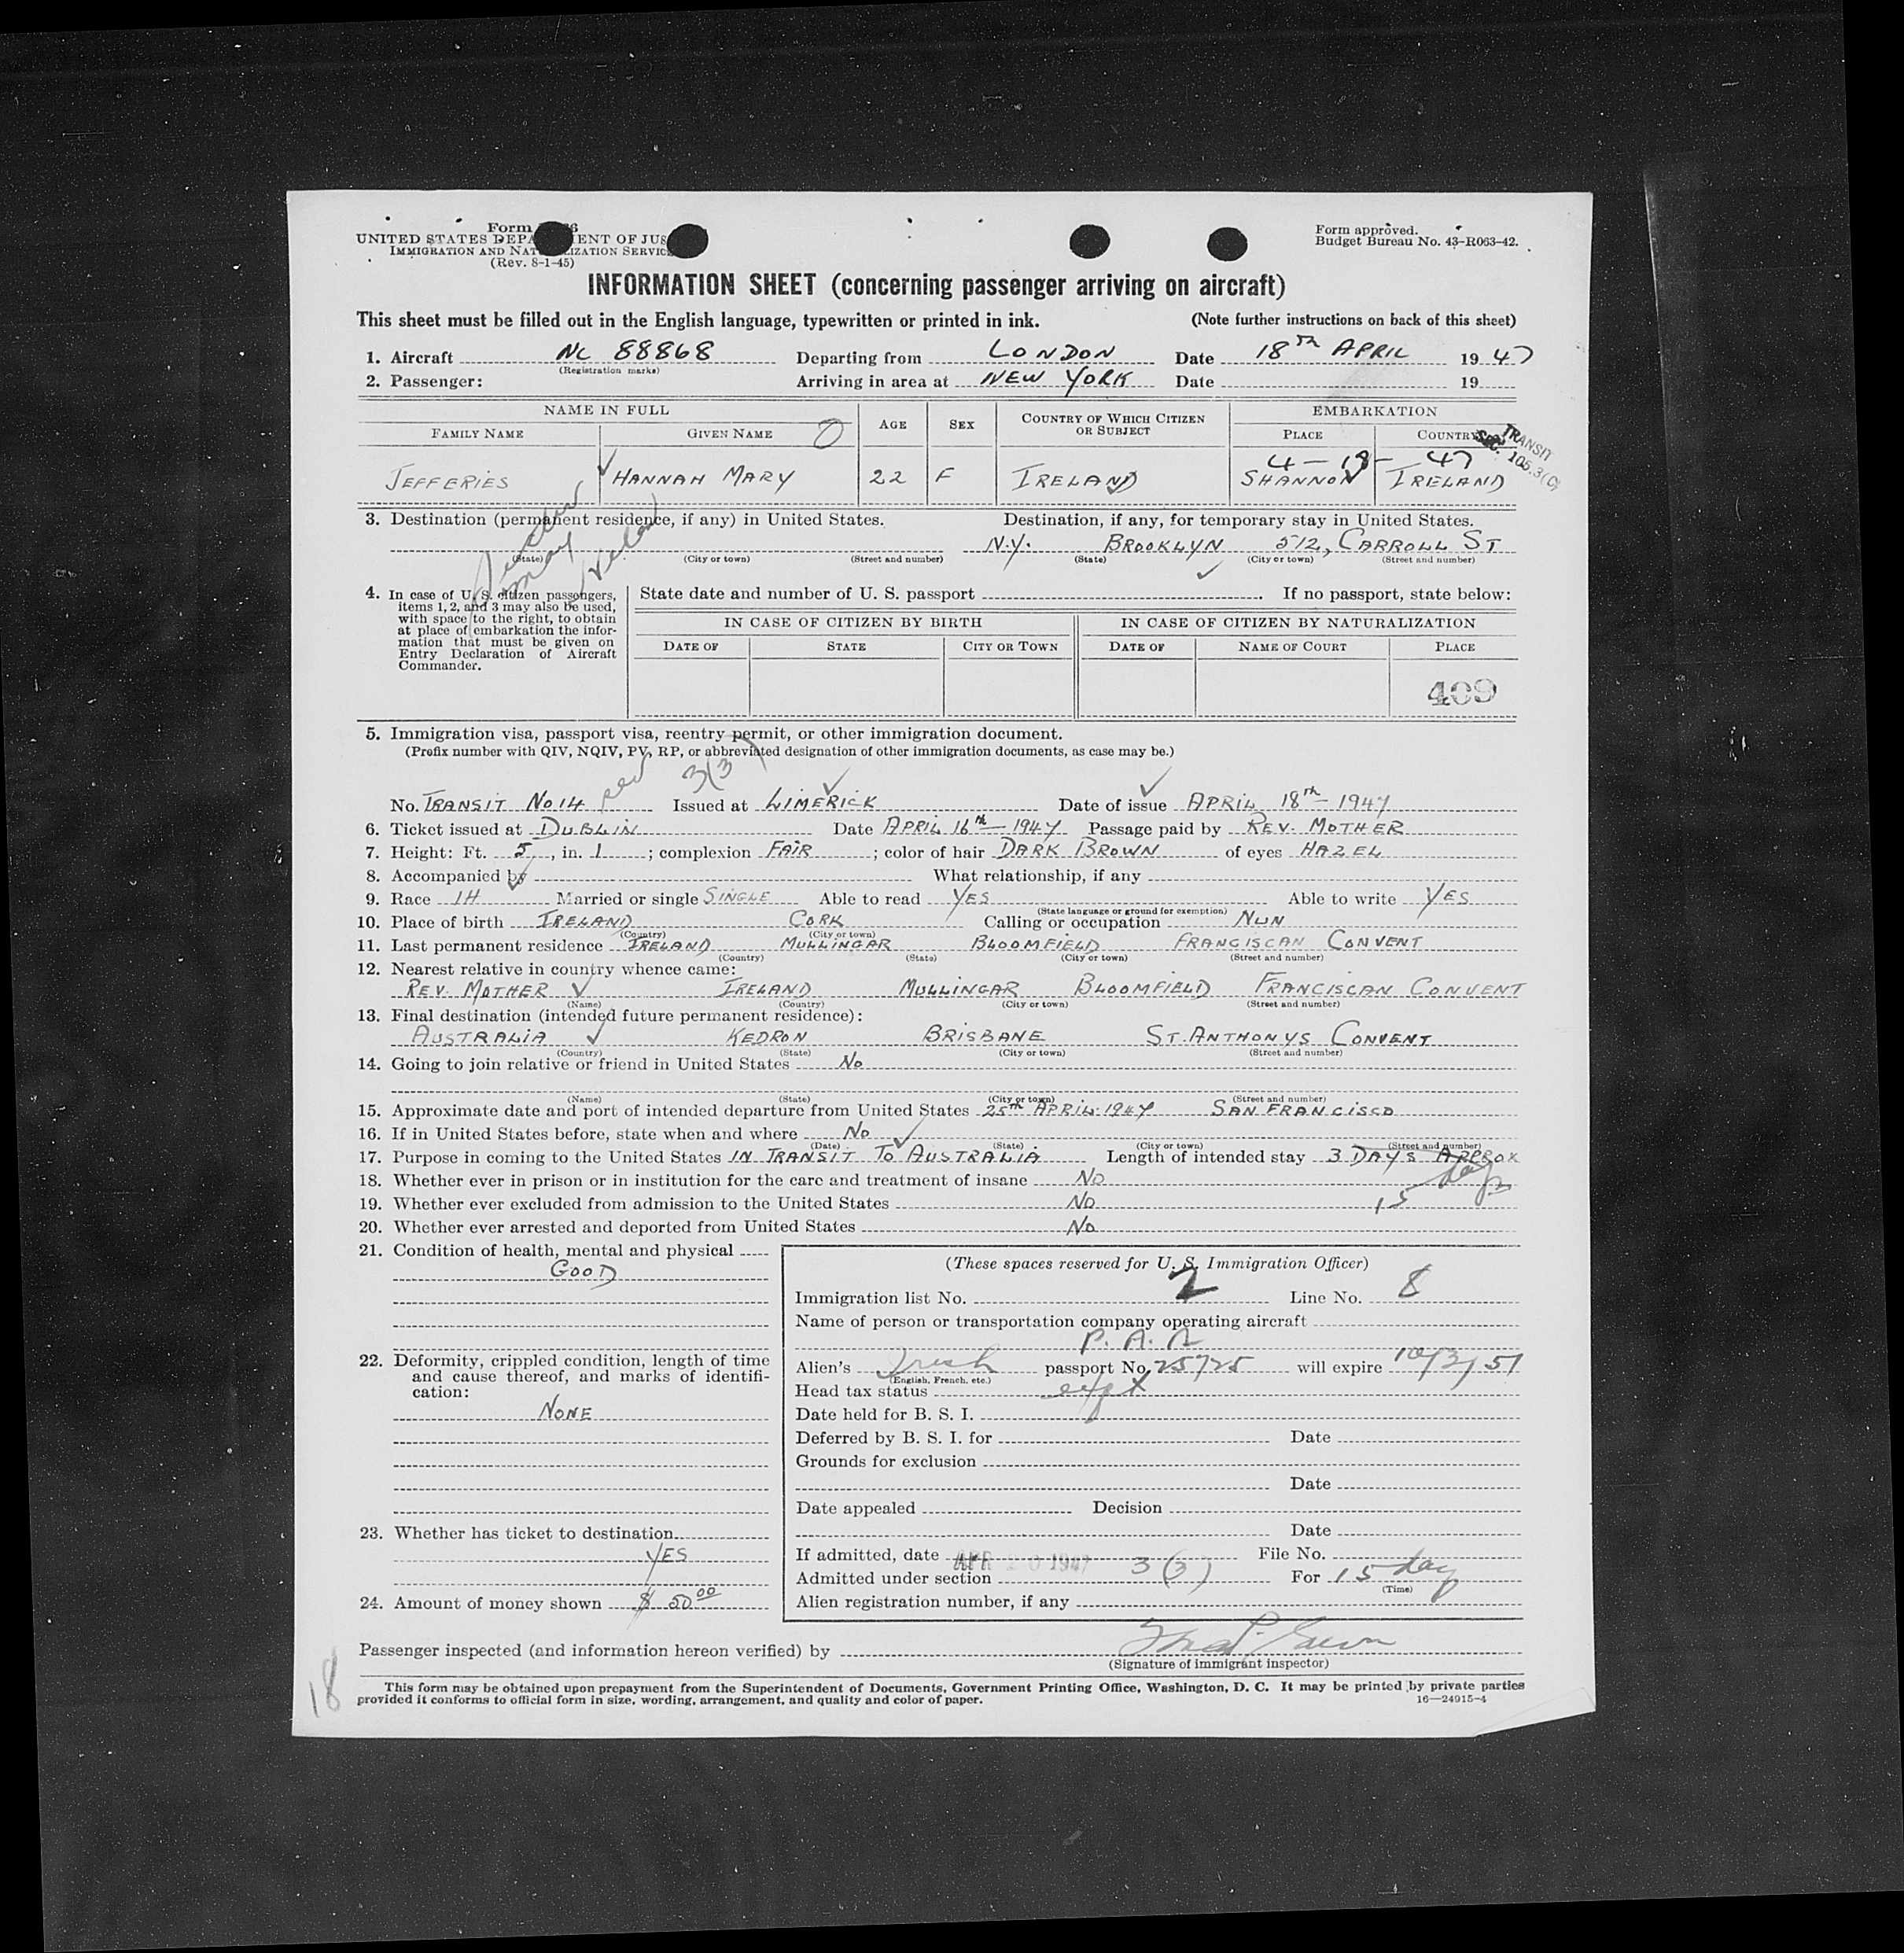 Form
UNITED STATES DEPA ENT OF JUS
IMMIGRATION AND NAT IZATION SERVIC
(Rev. 8-1-45)
Form approved.
Budget Bureau No. 43-R063-42.
INFORMATION SHEET (concerning passenger arriving on aircraft)
This sheet must be filled out in the English language, typewritten or printed in ink. (Note further instructions on back of this sheet)
1. Aircraft NC 88868 Departing from LONDON Date 18TH APRIL 1947
(Registration marks)
2. Passenger: Arriving in area at NEW YORK Date 19
NAME IN FULL AGE SEX COUNTRY OF WHICH CITIZEN OR SUBJECT EMBARKATION
FAMILY NAME GIVEN NAME PLACE COUNTRY
TRANSIT
SEC. 105.3(C)
4-19-47
JEFFERIES HANNAH MARY 22 F IRELAND SHANNON IRELAND
3. Destination (permanent residence, if any) in United States. Destination, if any, for temporary stay in United States.
N.Y. BROOKLYN 512, CARROLL ST
(State) (City or town) (Street and number) (State) (City or town) (Street and number)
4. In case of U. S. citizen passengers, items 1, 2, and 3 may also be used, with space to the right, to obtain at place of embarkation the information that must be given on Entry Declaration of Aircraft Commander.
State date and number of U. S. passport If no passport, state below:
IN CASE OF CITIZEN BY BIRTH IN CASE OF CITIZEN BY NATURALIZATION
DATE OF STATE CITY OR TOWN DATE OF NAME OF COURT PLACE
409
5. Immigration visa, passport visa, reentry permit, or other immigration document.
(Prefix number with QIV, NQIV, PV, RP, or abbreviated designation of other immigration documents, as case may be.)
3(3)
No. TRANSIT No 14 Issued at LIMERICK Date of issue APRIL 18th - 1947
6. Ticket issued at DUBLIN Date APRIL 16th - 1947 Passage paid by REV. MOTHER
7. Height: Ft. 5, in. 1; complexion FAIR; color of hair DARK BROWN of eyes HAZEL
8. Accompanied by What relationship, if any
9. Race IH Married or single SINGLE Able to read YES Able to write YES
(State language or ground for exemption)
10. Place of birth IRELAND CORK Calling or occupation NUN
(Country) (City or town)
11. Last permanent residence IRELAND MULLINGAR BLOOMFIELD FRANCISCAN CONVENT
(Country) (State) (City or town) (Street and number)
12. Nearest relative in country whence came:
REV. MOTHER IRELAND MULLINGAR BLOOMFIELD FRANCISCAN CONVENT
(Name) (Country) (City or town) (Street and number)
13. Final destination (intended future permanent residence):
AUSTRALIA KEDRON BRISBANE ST. ANTHONYS CONVENT
(Country) (State) (City or town) (Street and number)
14. Going to join relative or friend in United States No
(Name) (State) (City or town) (Street and number)
15. Approximate date and port of intended departure from United States 25th APRIL 1947 SAN FRANCISCO
16. If in United States before, state when and where No
(Date) (State) (City or town) (Street and number)
17. Purpose in coming to the United States IN TRANSIT TO AUSTRALIA Length of intended stay 3 DAYS APPROX
18. Whether ever in prison or in institution for the care and treatment of insane NO
19. Whether ever excluded from admission to the United States NO 15 days
20. Whether ever arrested and deported from United States No
21. Condition of health, mental and physical
GOOD
22. Deformity, crippled condition, length of time and cause thereof, and marks of identification:
NONE
23. Whether has ticket to destination
YES
24. Amount of money shown $ 50.00
(These spaces reserved for U. S. Immigration Officer)
Immigration list No. 2 Line No. 8
Name of person or transportation company operating aircraft
P. A. A
Alien's Irish passport No. 25725 will expire 10/3/51
(English, French, etc.)
Head tax status expt
Date held for B. S. I.
Deferred by B. S. I. for Date
Grounds for exclusion
Date
Date appealed Decision
Date
If admitted, date APR 20 1947 File No.
Admitted under section 3(3) For 15 days
(Time)
Alien registration number, if any
Passenger inspected (and information hereon verified) by
(Signature of immigrant inspector)
18
This form may be obtained upon prepayment from the Superintendent of Documents, Government Printing Office, Washington, D. C. It may be printed by private parties
provided it conforms to official form in size, wording, arrangement, and quality and color of paper. 16—24915-4